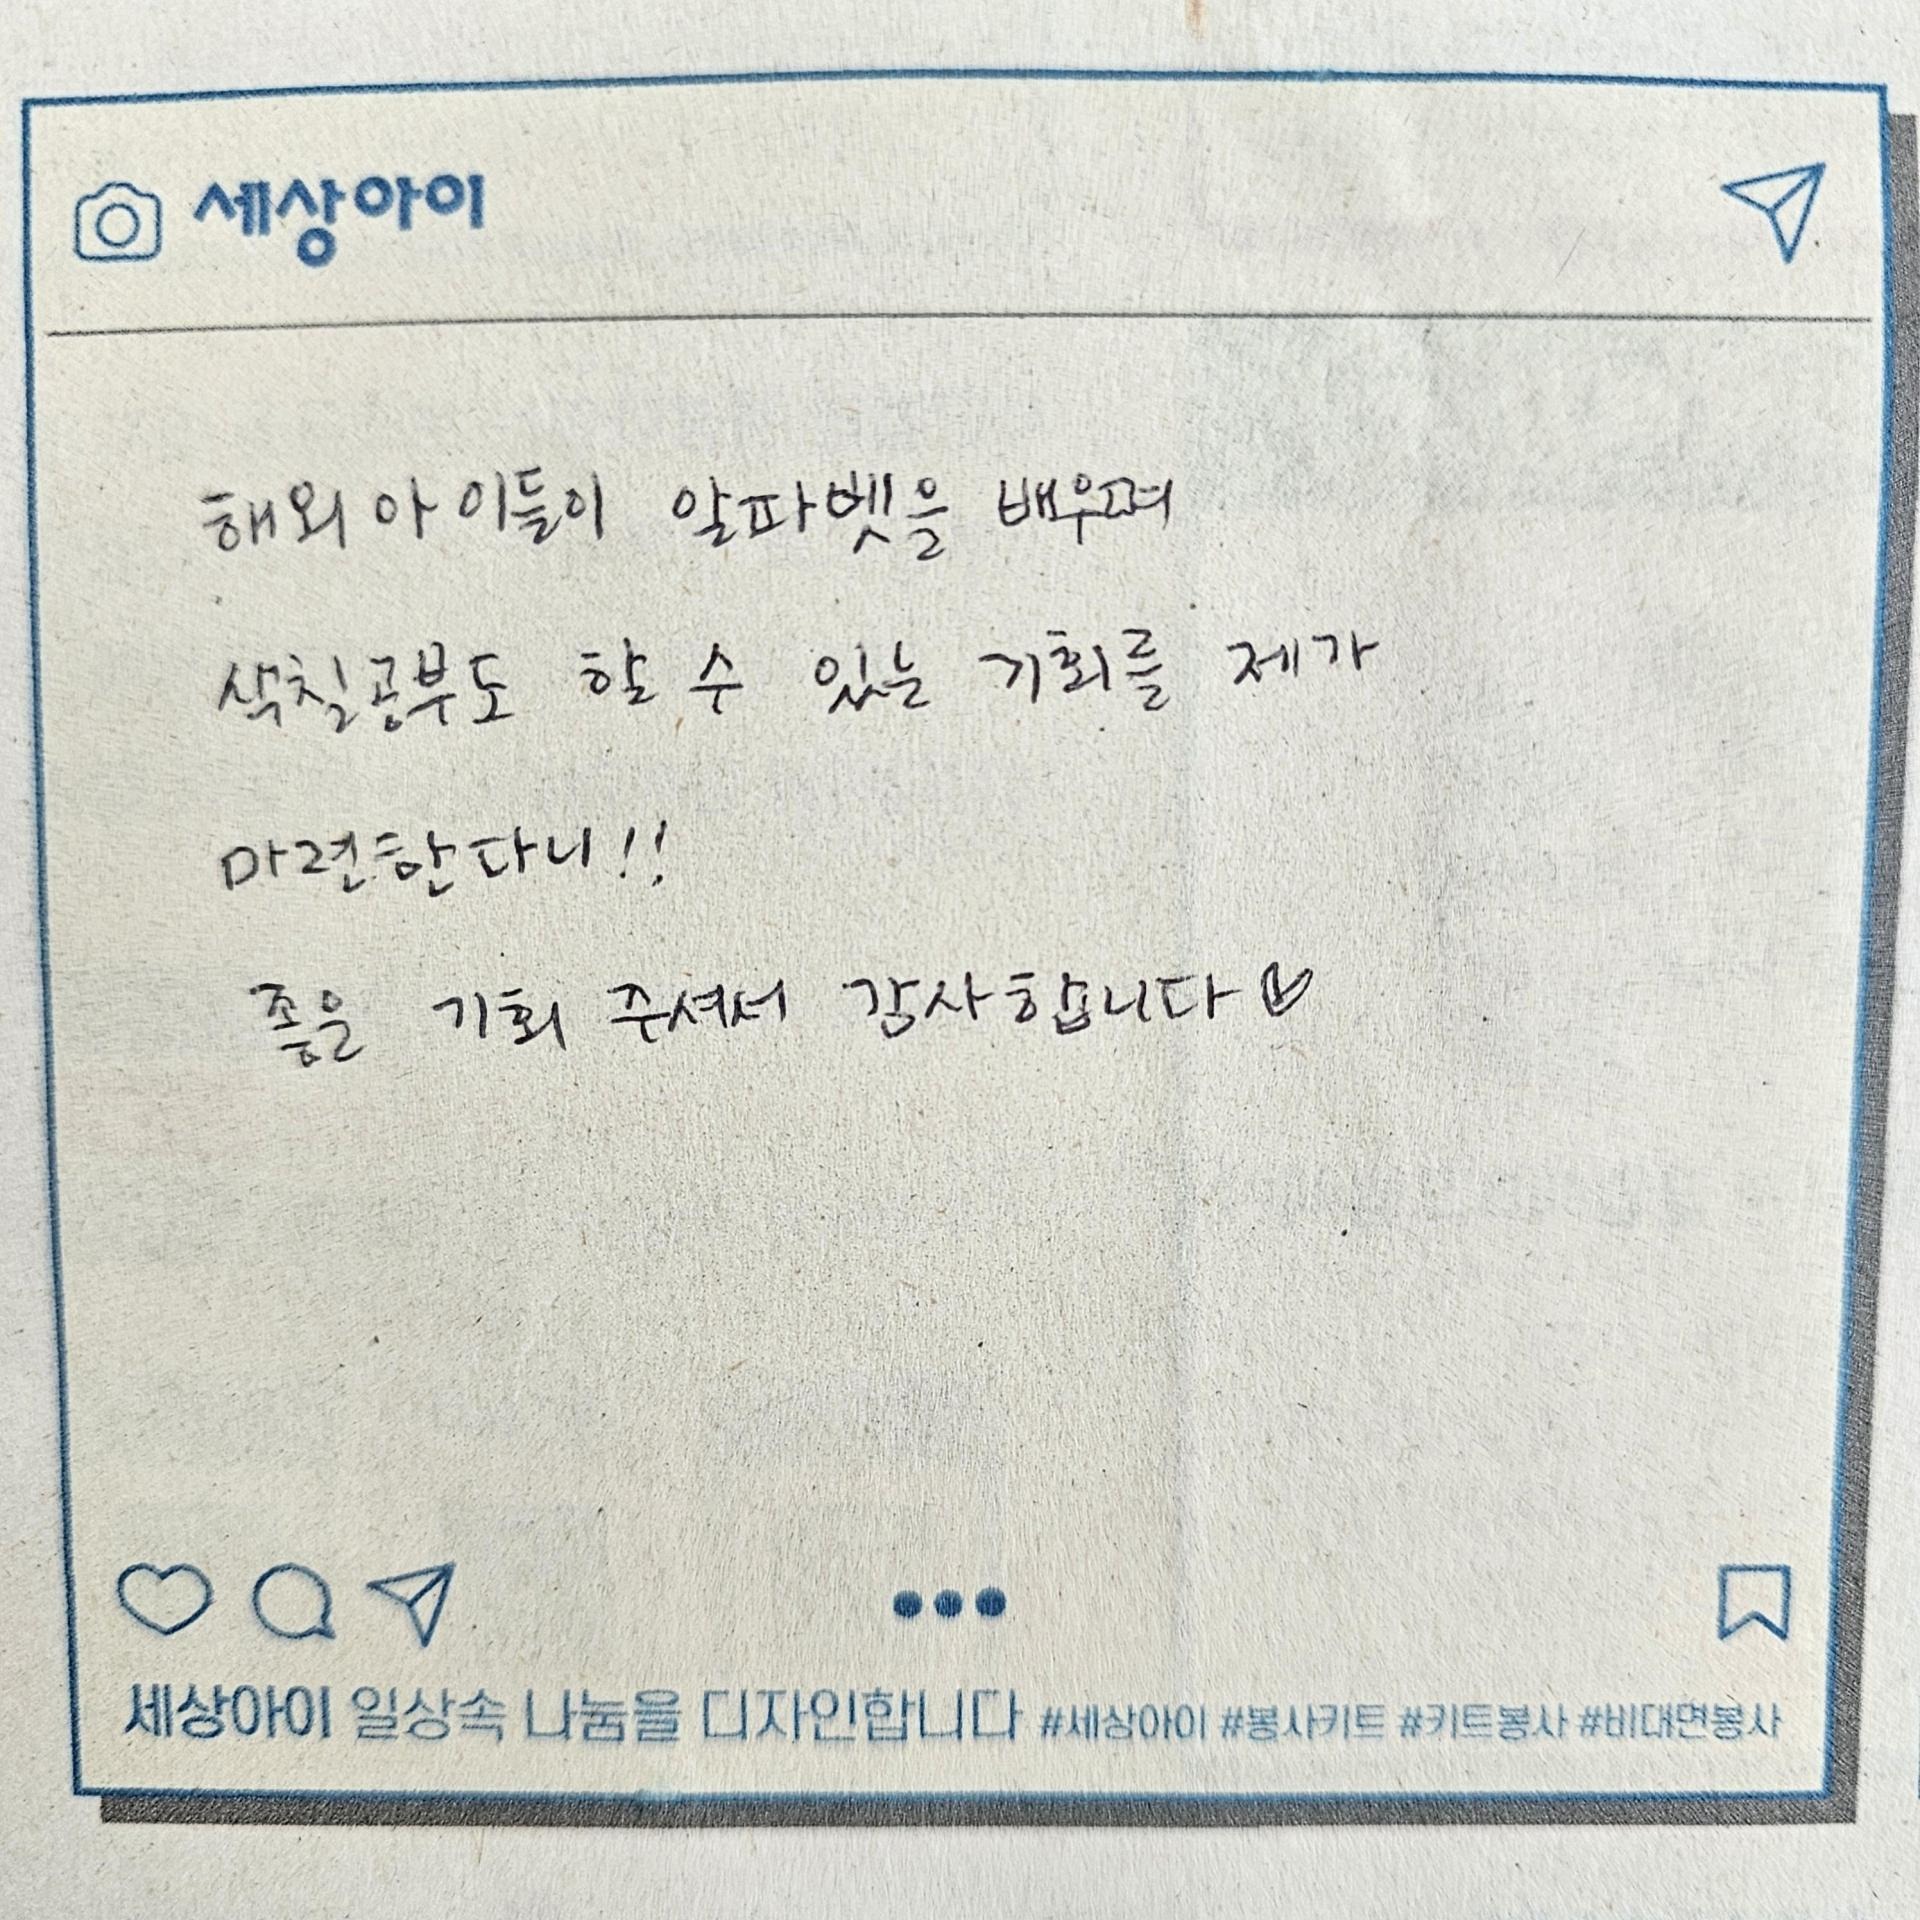 세상아이
해외 아이들이 알파벳을 배우며
색칠공부도 할 수 있는 기회를 제가
마련한다니!!
좋은 기회 주셔서 감사합니다♡
세상아이 일상속 나눔을 디자인합니다 #세상아이 #봉사키트 #키트봉사 #비대면봉사